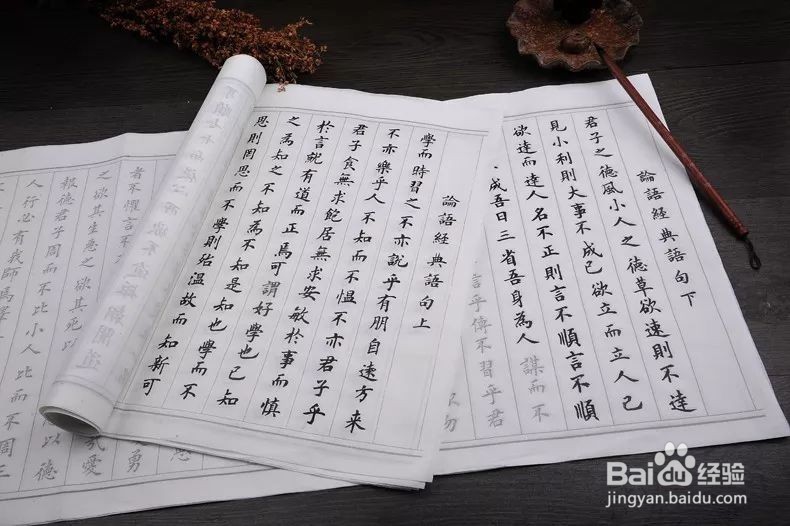 論語經典語句下
君子之德風小人之德草欲速則不達
見小利則大事不成己欲立而立人己
欲達而達人名不正則言不順言不順
成吾日三省吾身為人謀而不
言乎傳不習乎君
勿
論語經典語句上
學而時習之不亦說乎有朋自遠方来
不亦樂乎人不知而不愠不亦君子乎
君子食無求飽居無求安敏於事而慎
於言就有道而正焉可謂好學也已知
之為知之不知為不知是知也學而不
思則罔思而不學則殆温故而知新可
勇
者不懼言不
之欲其生惡之欲其死以
報德君子周而不比小人比而不周三
人行必有我師焉擇
以德
Baidu经验
jingyan.baidu.com